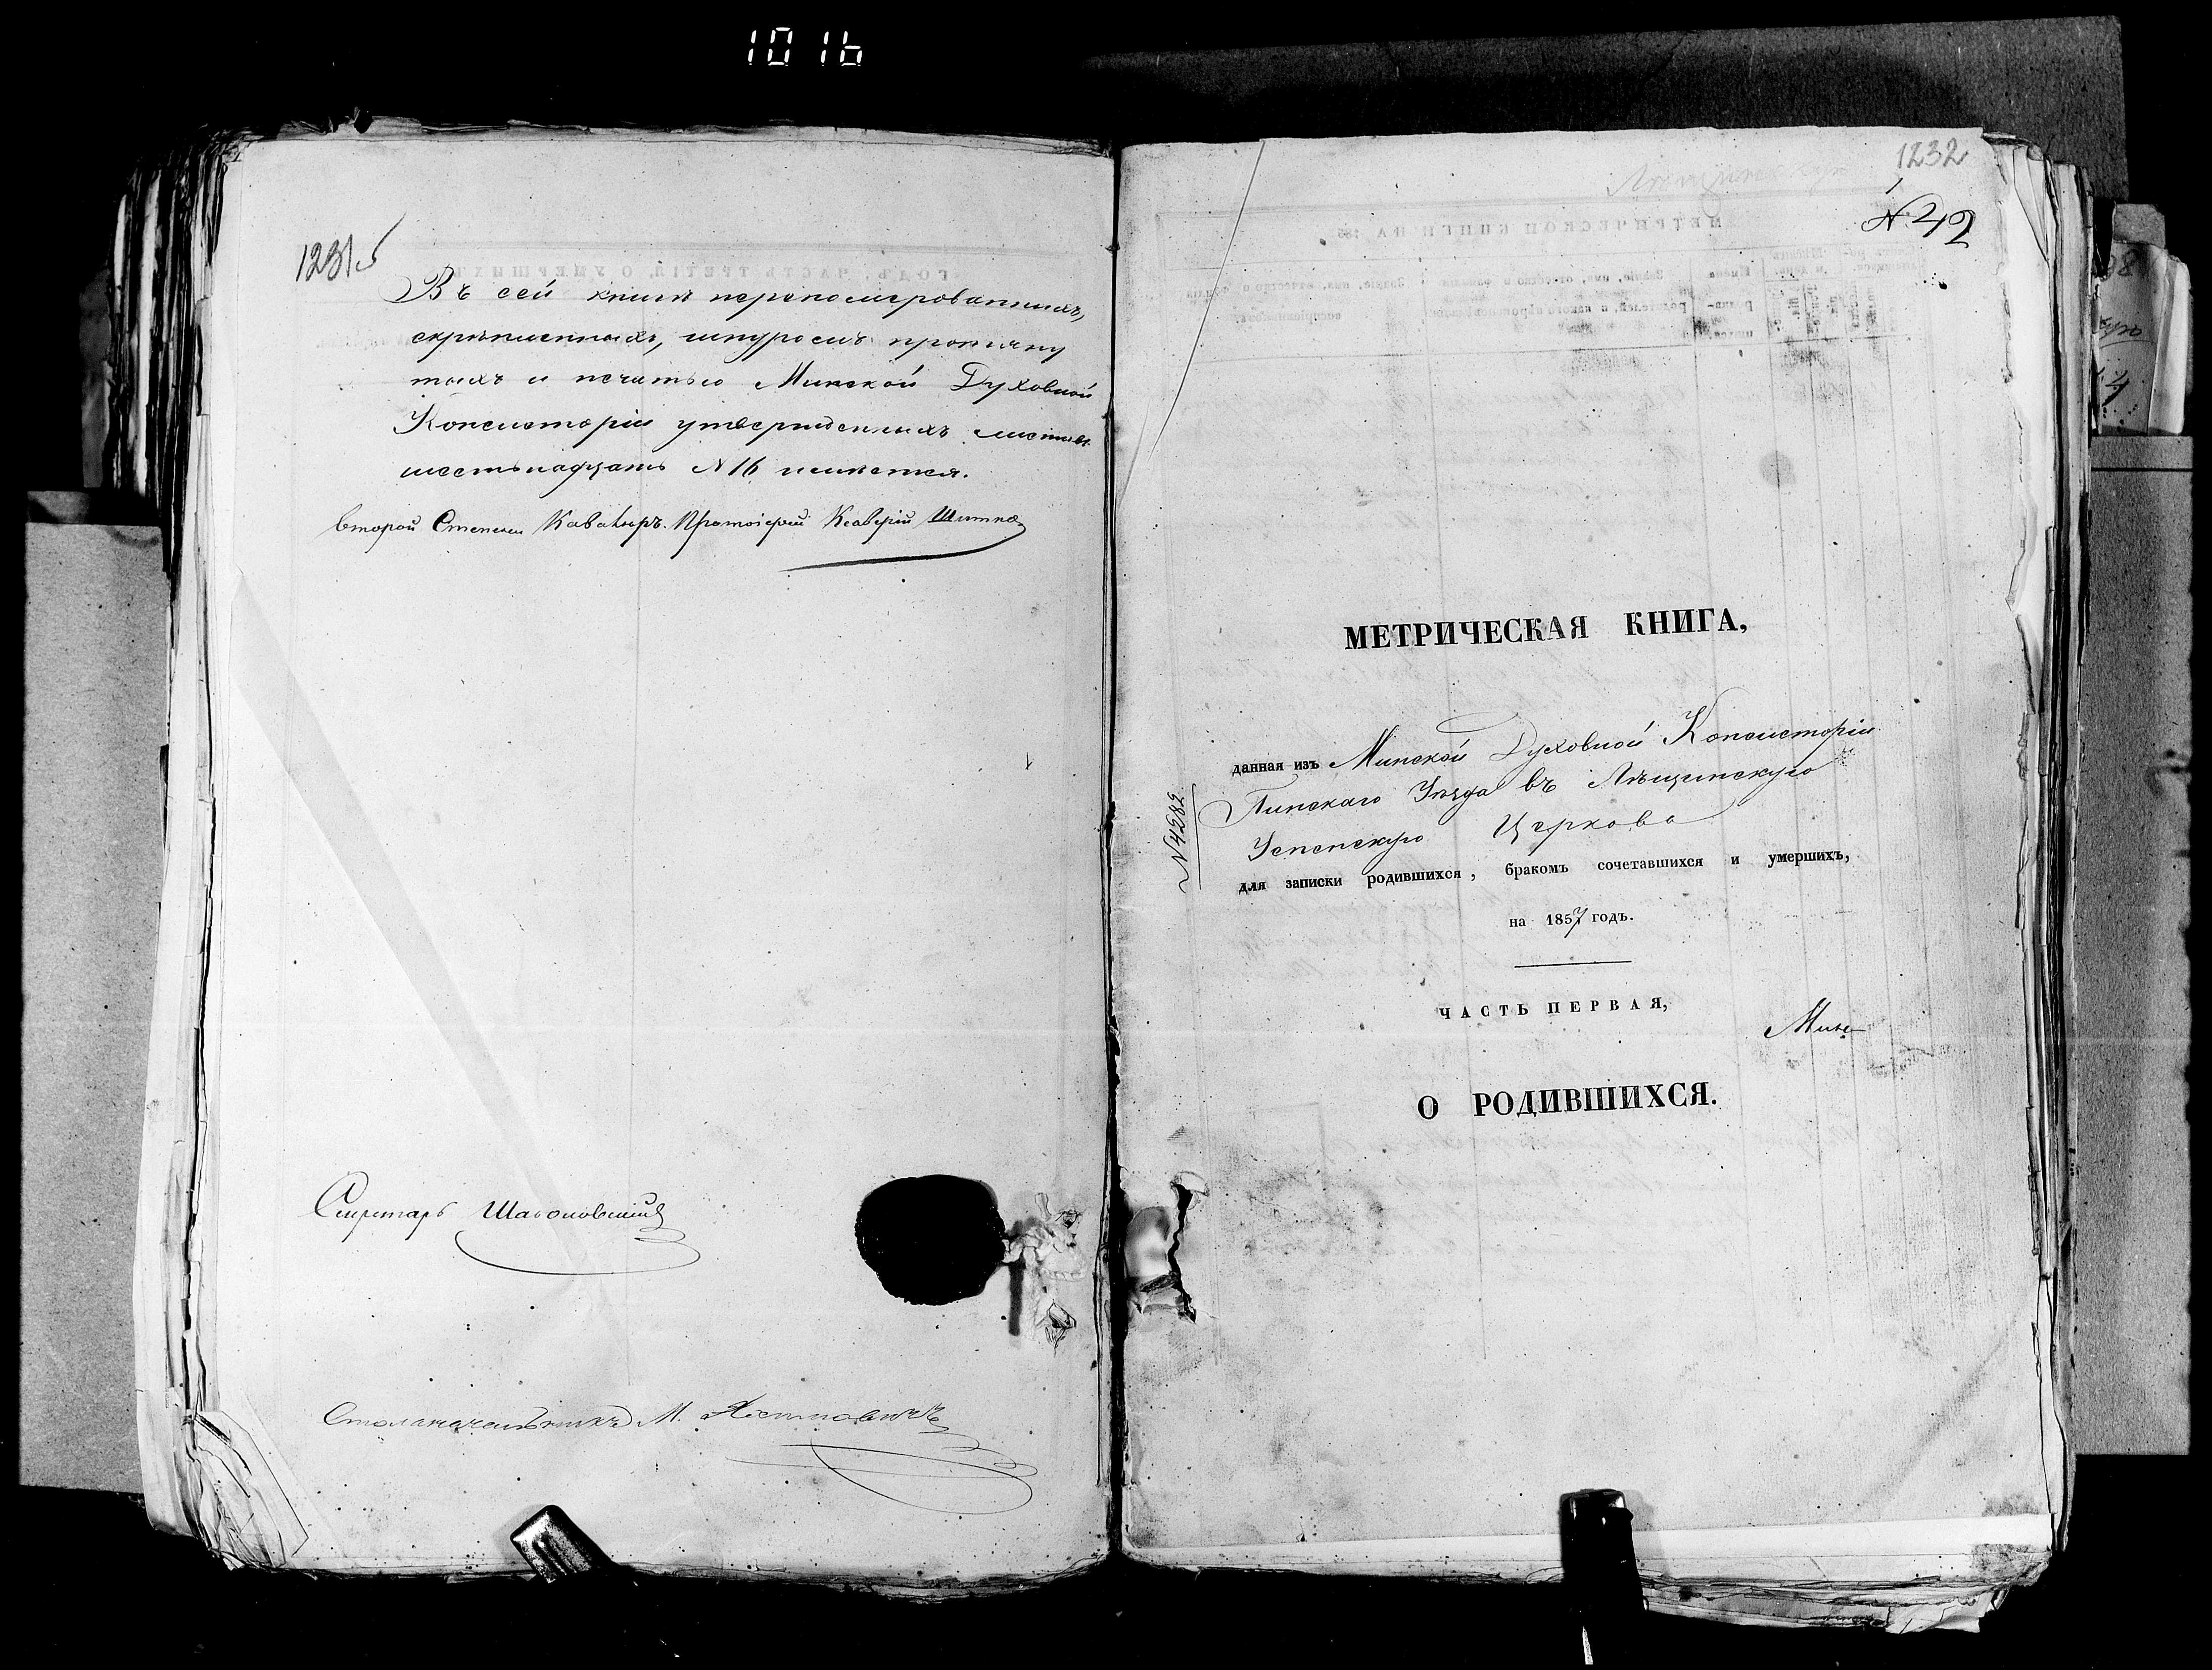 1016
1231 б
Въ сей книгѣ перенумерованныхъ,
скрѣпленныхъ, шнуромъ протяну
тыхъ и печатью Минской Духовной
Консисторіи утвержденныхъ листовъ
шестьнадцать N 16 имѣется.
второй Степени Кавалеръ Протоіерей Ксаверій
Секретарь
Столоначальникъ М.
1232
N. 42
МЕТРИЧЕСКАЯ КНИГА,
данная изъ Минской Духовной Консисторіи
Пинскаго Уѣзда въ Лѣщинскую
Успенскую Церковь
N 4282
для записки родившихся, бракомъ сочетавшихся и умершихъ,
на 1857 годъ.
ЧАСТЬ ПЕРВАЯ,
Мин-
О РОДИВШИХСЯ.